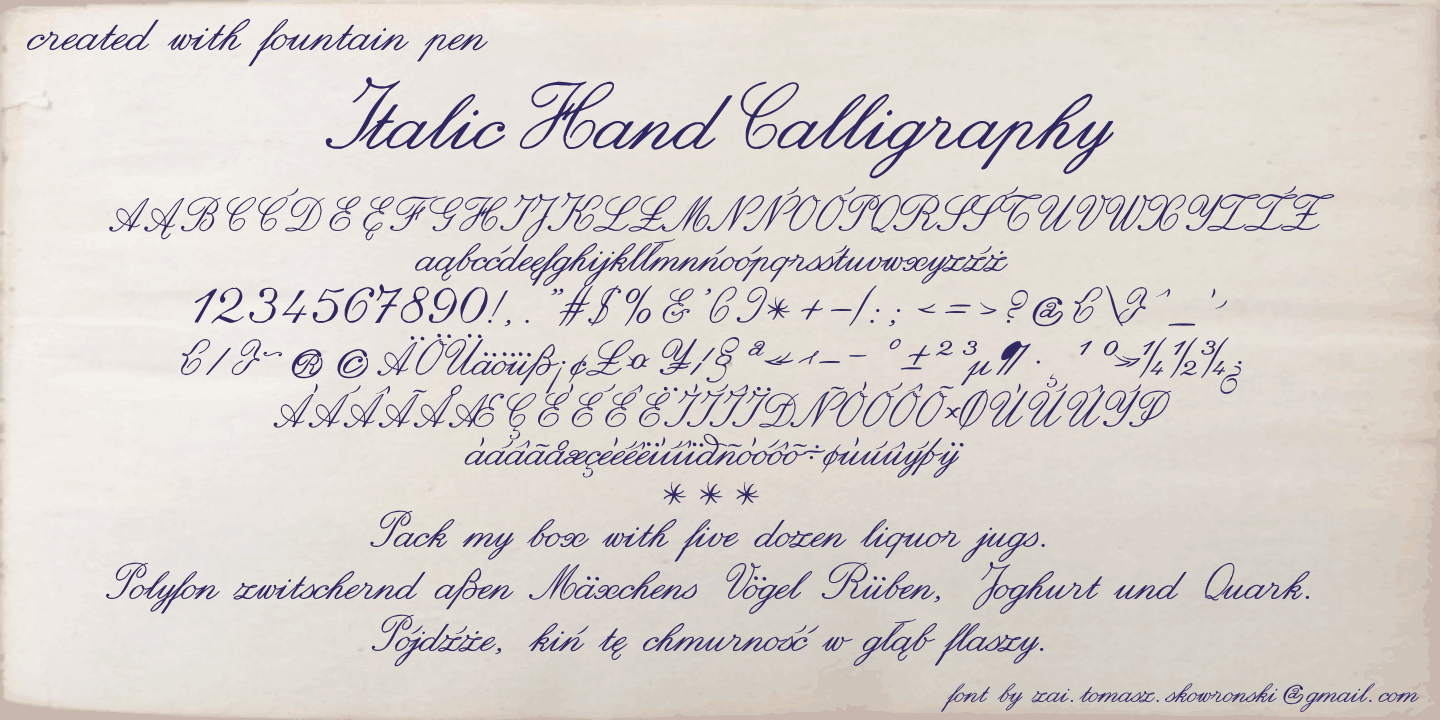 created with fountain pen
Italic Hand Calligraphy
AĄBCĆDEĘFGHIJKLŁMNŃOÓPQRSŚTUVWXYZŹŻ
aąbcćdeęfghijklłmnńoópqrsśtuvwxyzźż
1234567890!,."#$%&'()*+-/:;<=>?@[\]^_`´
{/}~®©ÄÖÜäöüß¡¢£¤¥¦§ª«¬--°±²³µ¶·¸¹º»¼½¾¿
ÀÁÂÃÅÆÇÈÉÊËÌÍÎÏÐÑÒÓÔÕ×ØÙÚÛÝÞ
àáâãåæçèéêëìíîïðñòóôõ÷øùúûýþÿ
* * *
Pack my box with five dozen liquor jugs.
Polyfon zwitschernd aßen Mäxchens Vögel Rüben, Joghurt und Quark.
Pójdźże, kiń tę chmurność w głąb flaszy.
font by zai.tomasz.skowronski@gmail.com